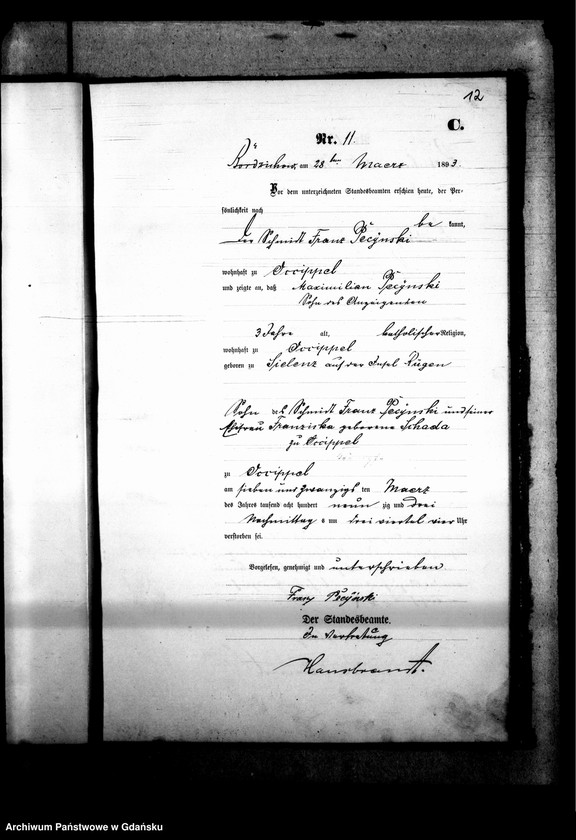 12
C.
Nr. 11.
am 28ten Maerz 1893.
Vor dem unterzeichneten Standesbeamten erschien heute, der Per-
sönlichkeit nach
be kannt,
der Schmidt Franz Pečynski
wohnhaft zu Occippel
und zeigte an, daß Maximilian Pečynski
Sohn des Anzeigenden
3 Jahre alt, katholischer Religion,
wohnhaft zu Occippel
geboren zu Sielenz auf der Insel Rügen
Sohn des Schmidt Franz Pečynski und seiner
Ehefrau Franziska geborene Schada
zu Occippel
zu Occippel
am sieben und zwanzigs ten Maerz
des Jahres tausend acht hundert neun zig und drei
Nachmittag s um drei viertel vier Uhr
verstorben sei.
Vorgelesen, genehmigt und unterschrieben
Franz Pečynski
Der Standesbeamte.
In Vertretung
Archiwum Państwowe w Gdańsku